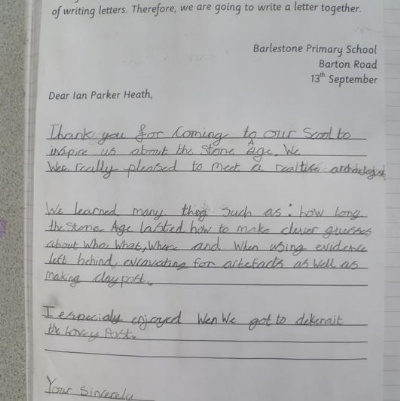 of writing letters. Therefore, we are going to write a letter together.
Barlestone Primary School
Barton Road
13th September
Dear Ian Parker Heath,
Thank you for Coming to our Scool to
inspire us about the Stone Age. We
Wer really pleased to meet a realtise
We learned many thing Such as: how long
the Stone Age lasted how to make clever guesses
about Who What, Where and When using evidence
left behind, excavating for artefacts as Well as
making clay post.
I especialy enjoyed Wen We got to
the Post.
Your Sincerely